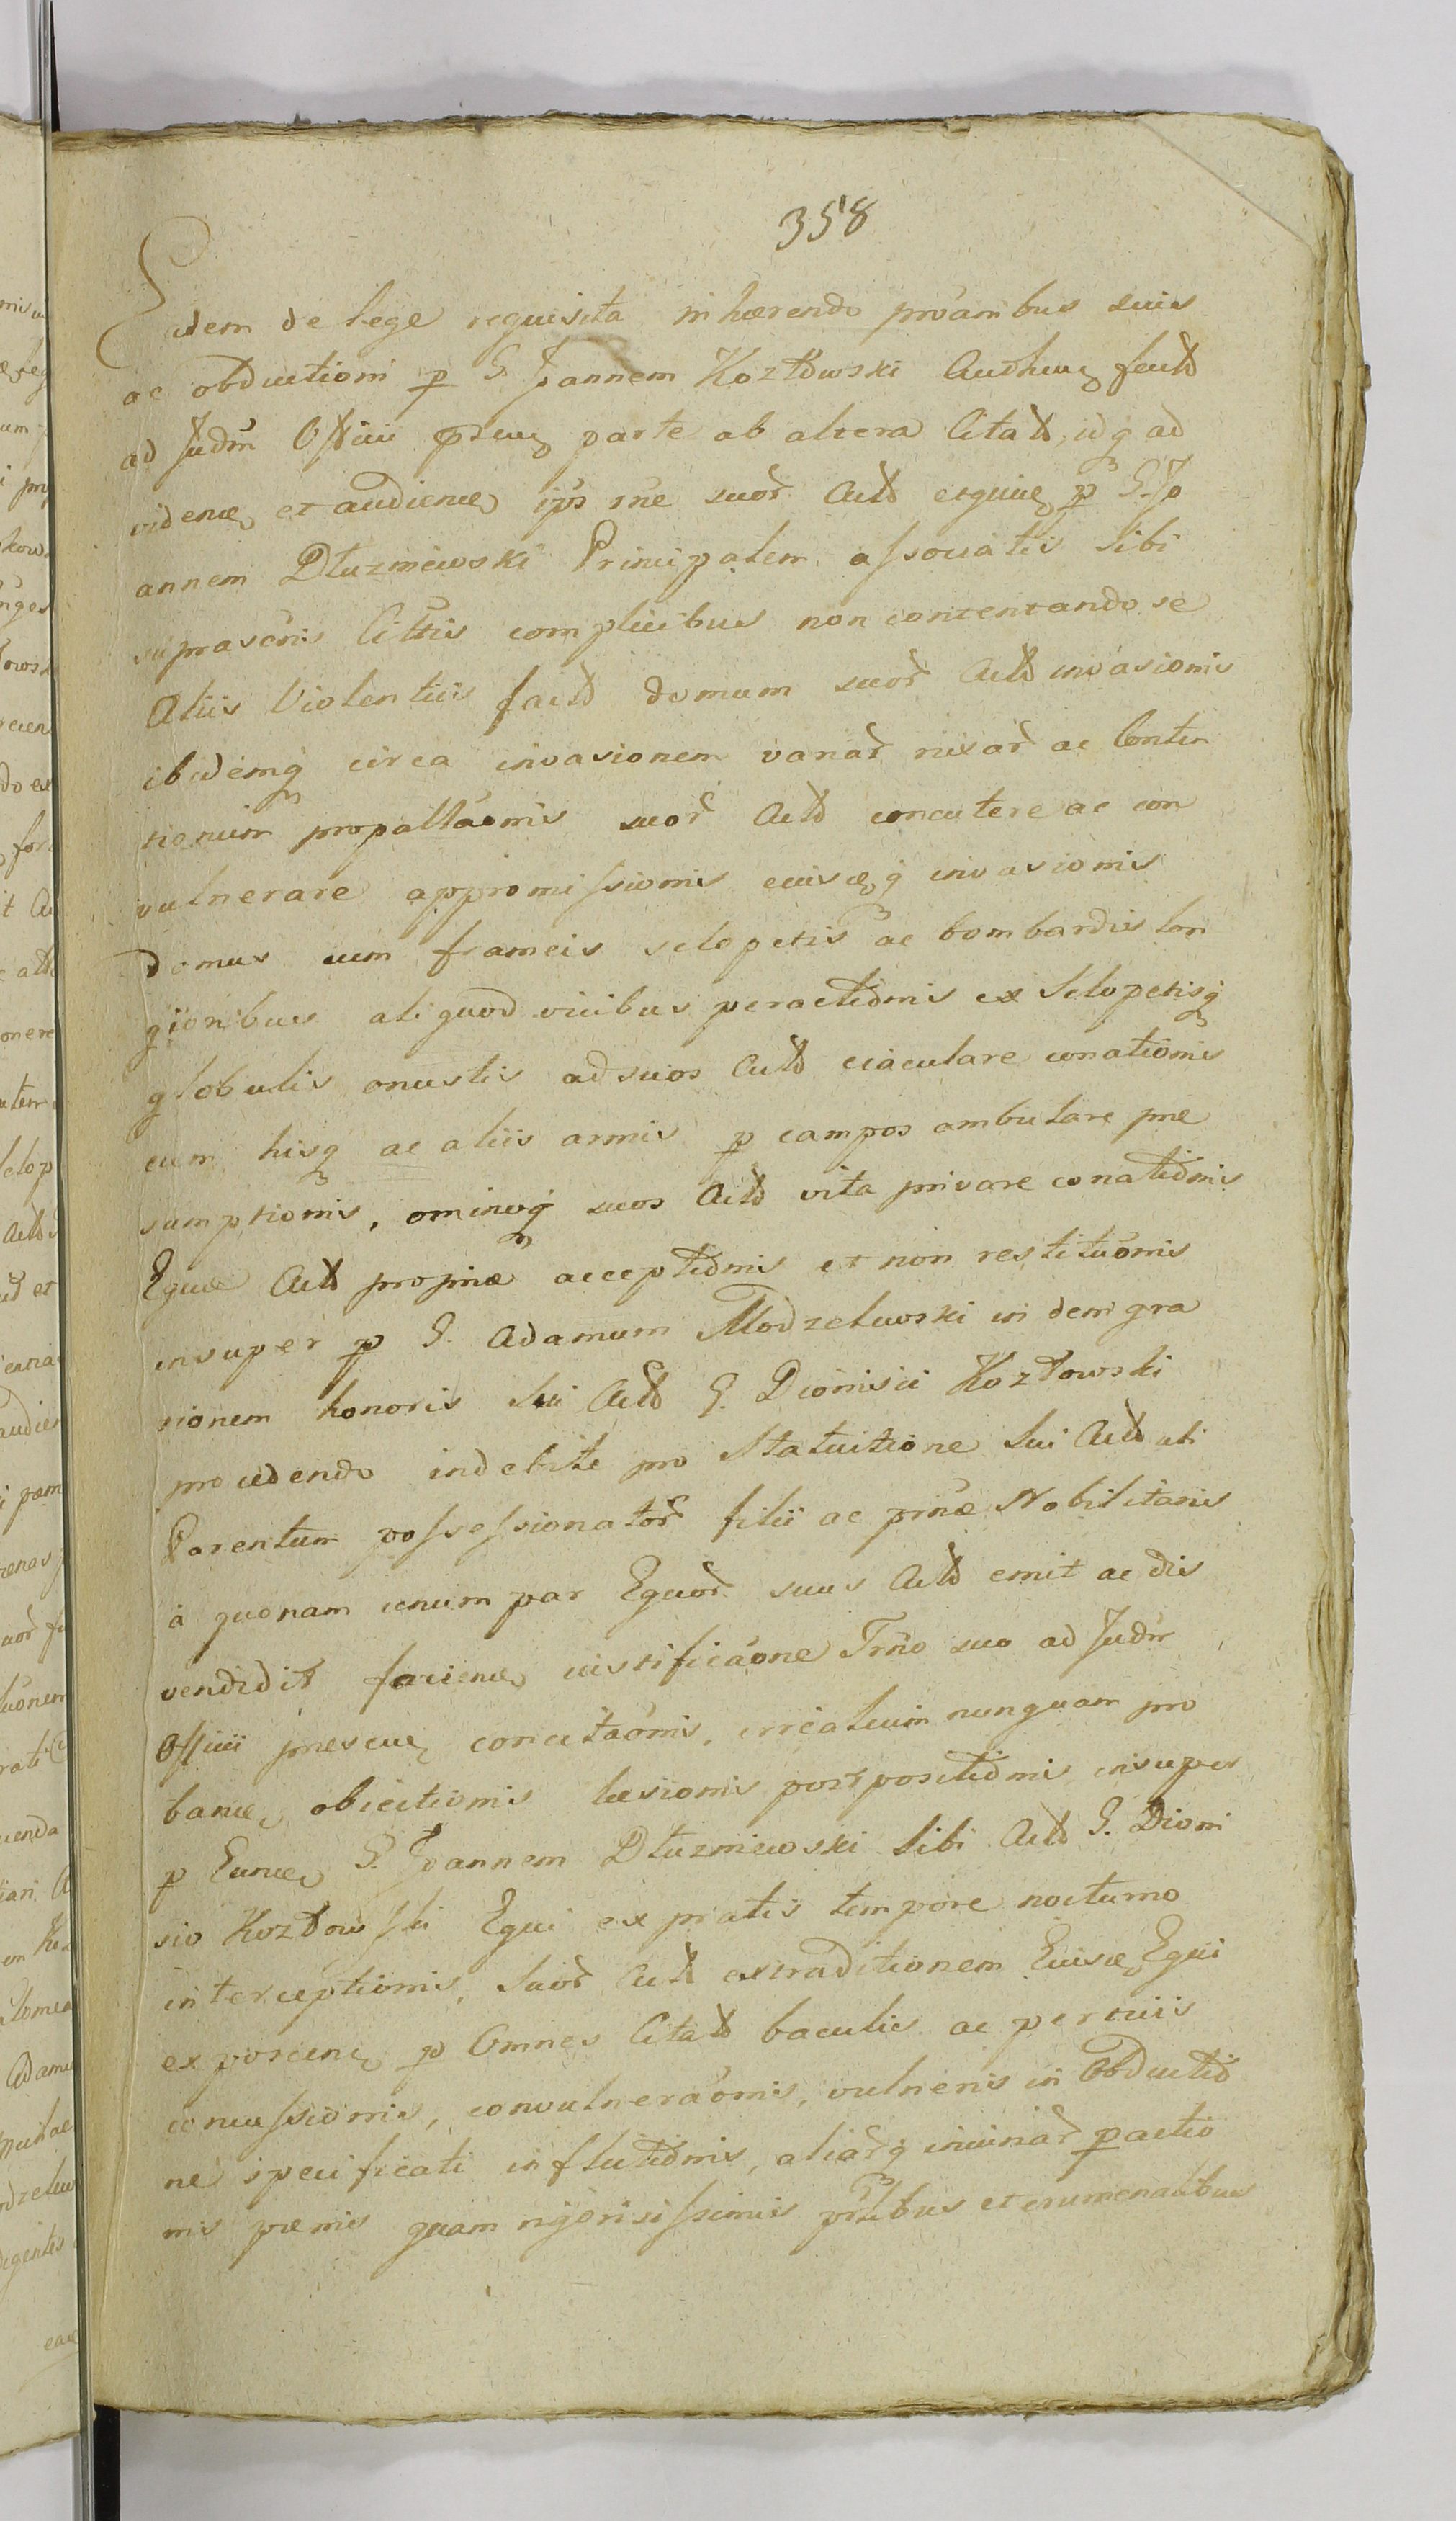 358
Eadem de lege requisita inhærendo prioribus suis
ac obductioni p G Joannem Kozłowski adhuc
ad Judm Officii parte ab altera Citat, idq ad
videnđ et audienđ ips rne suor Act p G. Jo
annem Dłuzniewski Principalem associatis sibi
suprascris Cittis complicibus non contentando se
Aliis Violentiis fact domum suor Act invasionis
ibidemq circa invasionem variar rixar ac Conten
tionum propallaonis suor Act concutere ac con
vulnerare appromissionis eiusq invasionis
domus cum frameis sclopetis ac bombardis lon
gioribus aliquod vicibus peractionis ex Sclopetisq
globulis onustis ad suos Act eiaculare conationis
cum hisq ac aliis armis p campos ambulare præ
sumptionis, ominoq suos Act vita privare conationis
Equæ Act propriæ acceptionis et non restituonis
insuper p G. Adamum Modzelewski in denigra
tionem honoris sui Act G. Dionisii Kozłowski
procedendo indebite pro Statuitione sui Act uti
Parentum possessionator filii ac prnæ Nobilitaris
à quonam unum par Equor suus Act emit ac dis
vendidit iustificaone Trno suo ad Judm
Officii concitaonis, irreatum nunquam pro
obiectionis læsionis postpositionis insuper
p G. Joannem Dłuzniewski sibi Act G. Dioni
sio Kozłowski Equi ex pratis tempore nocturno
interceptionis, suor Act extraditionem Equi
p Omnes Citat baculis ac perticis
concussionis, convulneraonis, vulneris in Obductio
ne specificati inflictionis, aliarq iniuriar pactio
nis pænis quam rigorisissimis